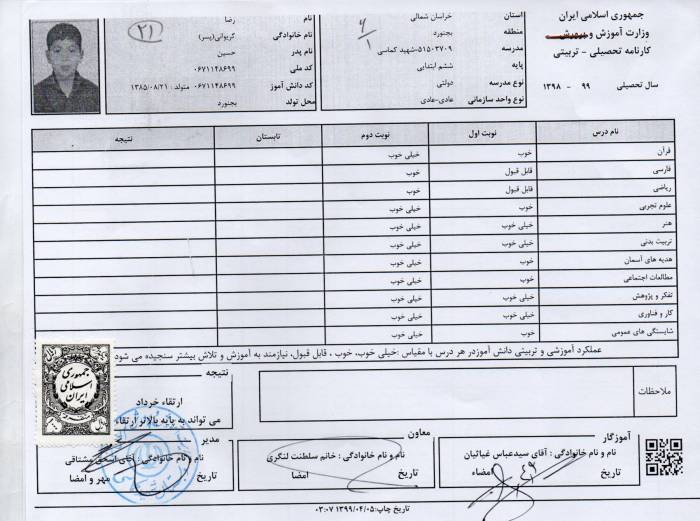 جمهوری اسلامی ایران
وزارت آموزش و پرورش
کارنامه تحصیلی - تربیتی
سال تحصیلی ۹۹ - ۱۳۹۸
استان خراسان شمالی
منطقه بجنورد
مدرسه ۵۱۵۰۳۷۰۹-شهید کماسی
پایه ششم ابتدایی
نوع مدرسه دولتی
نوع واحد سازمانی عادی-عادی
۶/۱
نام رضا
نام خانوادگی گریوانی(پسر)
نام پدر حسین
کد ملی ۰۶۷۱۱۴۸۶۹۹
کد دانش آموز ۰۶۷۱۱۴۸۶۹۹ متولد: ۱۳۸۵/۰۸/۲۱
محل تولد بجنورد
۲۱
نام درس نوبت اول نوبت دوم تابستان نتیجه
قرآن خوب خیلی خوب
فارسی قابل قبول خوب
ریاضی قابل قبول خوب
علوم تجربی خوب خیلی خوب
هنر خیلی خوب خیلی خوب
تربیت بدنی خیلی خوب خیلی خوب
هدیه های آسمان خوب خیلی خوب
مطالعات اجتماعی خوب خیلی خوب
تفکر و پژوهش خیلی خوب خیلی خوب
کار و فناوری خیلی خوب خیلی خوب
شایستگی های عمومی خوب خیلی خوب
عملکرد آموزشی و تربیتی دانش آموزدر هر درس با مقیاس :خیلی خوب، خوب ، قابل قبول، نیازمند به آموزش و تلاش بیشتر سنجیده می شود
ملاحظات
نتیجه
ارتقاء خرداد
می تواند به پایه بالاتر ارتقاء
جمهوری
اسلامی
ایران
آموزگار
نام و نام خانوادگی : آقای سیدعباس غیاثیان
تاریخ امضاء
معاون
نام و نام خانوادگی : خانم سلطنت لنگری
تاریخ امضا
مدیر
نام و نام خانوادگی : آقای مشتاقی
تاریخ مهر و امضا
تاریخ چاپ: ۱۳۹۹/۰۴/۰۵ ۰۳:۰۷